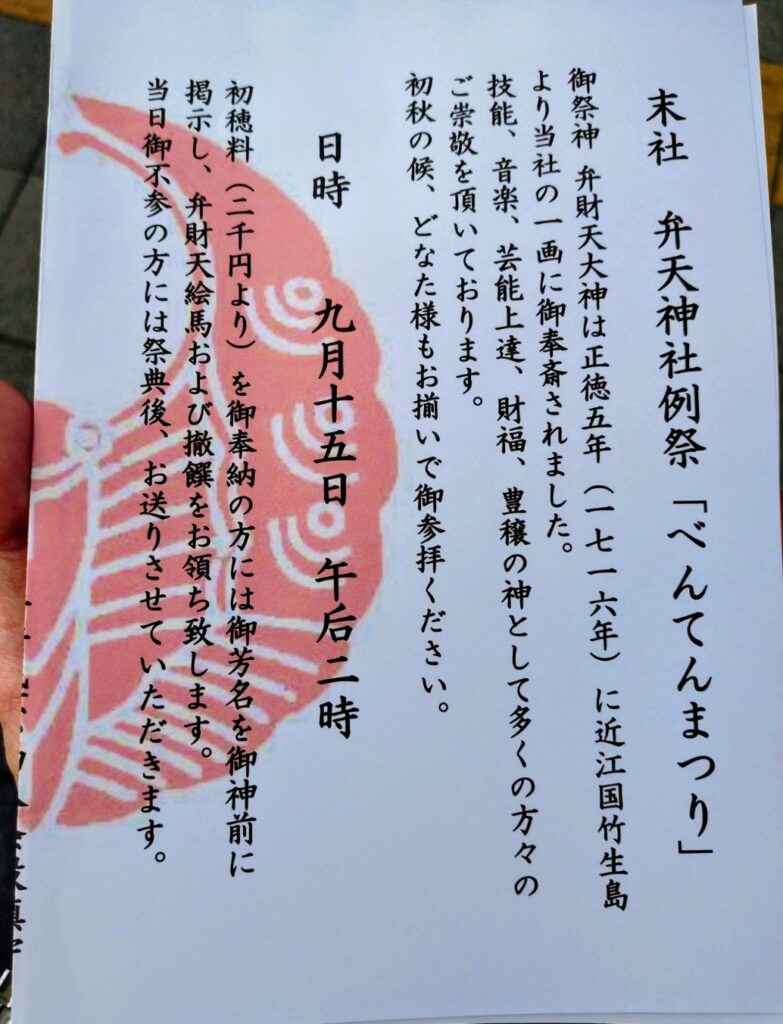 末社　弁天神社例祭「べんてんまつり」
御祭神 弁財天大神は正徳五年（一七一六年）に近江国竹生島
より当社の一画に御奉斎されました。
技能、音楽、芸能上達、財福、豊穣の神として多くの方々の
ご崇敬を頂いております。
初秋の候、どなた様もお揃いで御参拝ください。
日時　九月十五日　午后二時
初穂料（二千円より）を御奉納の方には御芳名を御神前に
掲示し、弁財天絵馬および撤饌をお領ち致します。
当日御不参の方には祭典後、お送りさせていただきます。